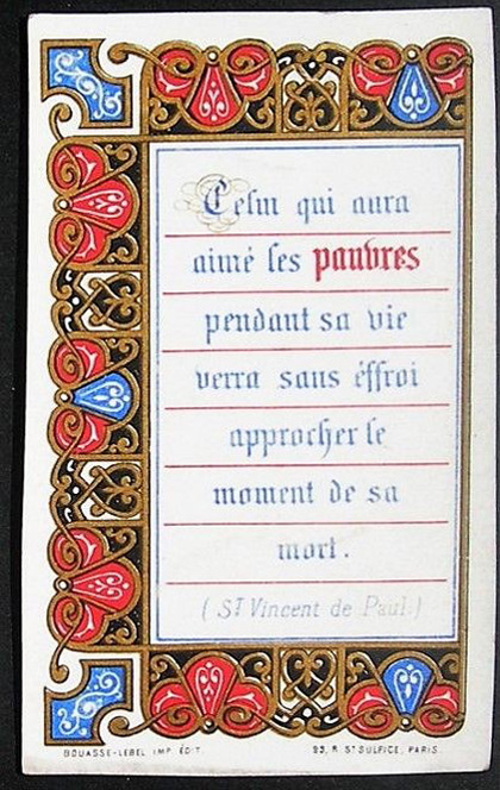 Celui qui aura
aimé les pauvres
pendant sa vie
verra sans éffroi
approcher le
moment de sa
mort.
(St Vincent de Paul.)
BOUASSE-LEBEL IMP. ÉDIT. 29, R. ST SULPICE, PARIS